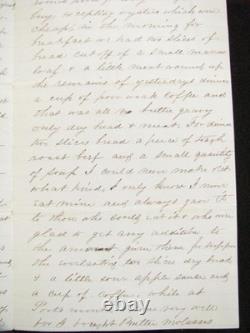 buy, excepting oysters which were
cheap, in the morning for
breakfast we had two slices of
bread cut off of a small
loaf & a little meat warmed up
the remains of yesterdays dinner
a cup of poor weak coffee and
that was all no butter gravy
only dry bread & meat. For dinner
two slices bread a piece of tough
roast beef and a small quantity
of soup I could never make out
what kind, I only know I never
eat mine and always gave it
to those who could eat it who were
glad to get any addition to
the amount given them for supper
the everlasting two slices dry bread
& a little sour apple sauce and
a cup of coffee while at
very well
I bought butter molasses